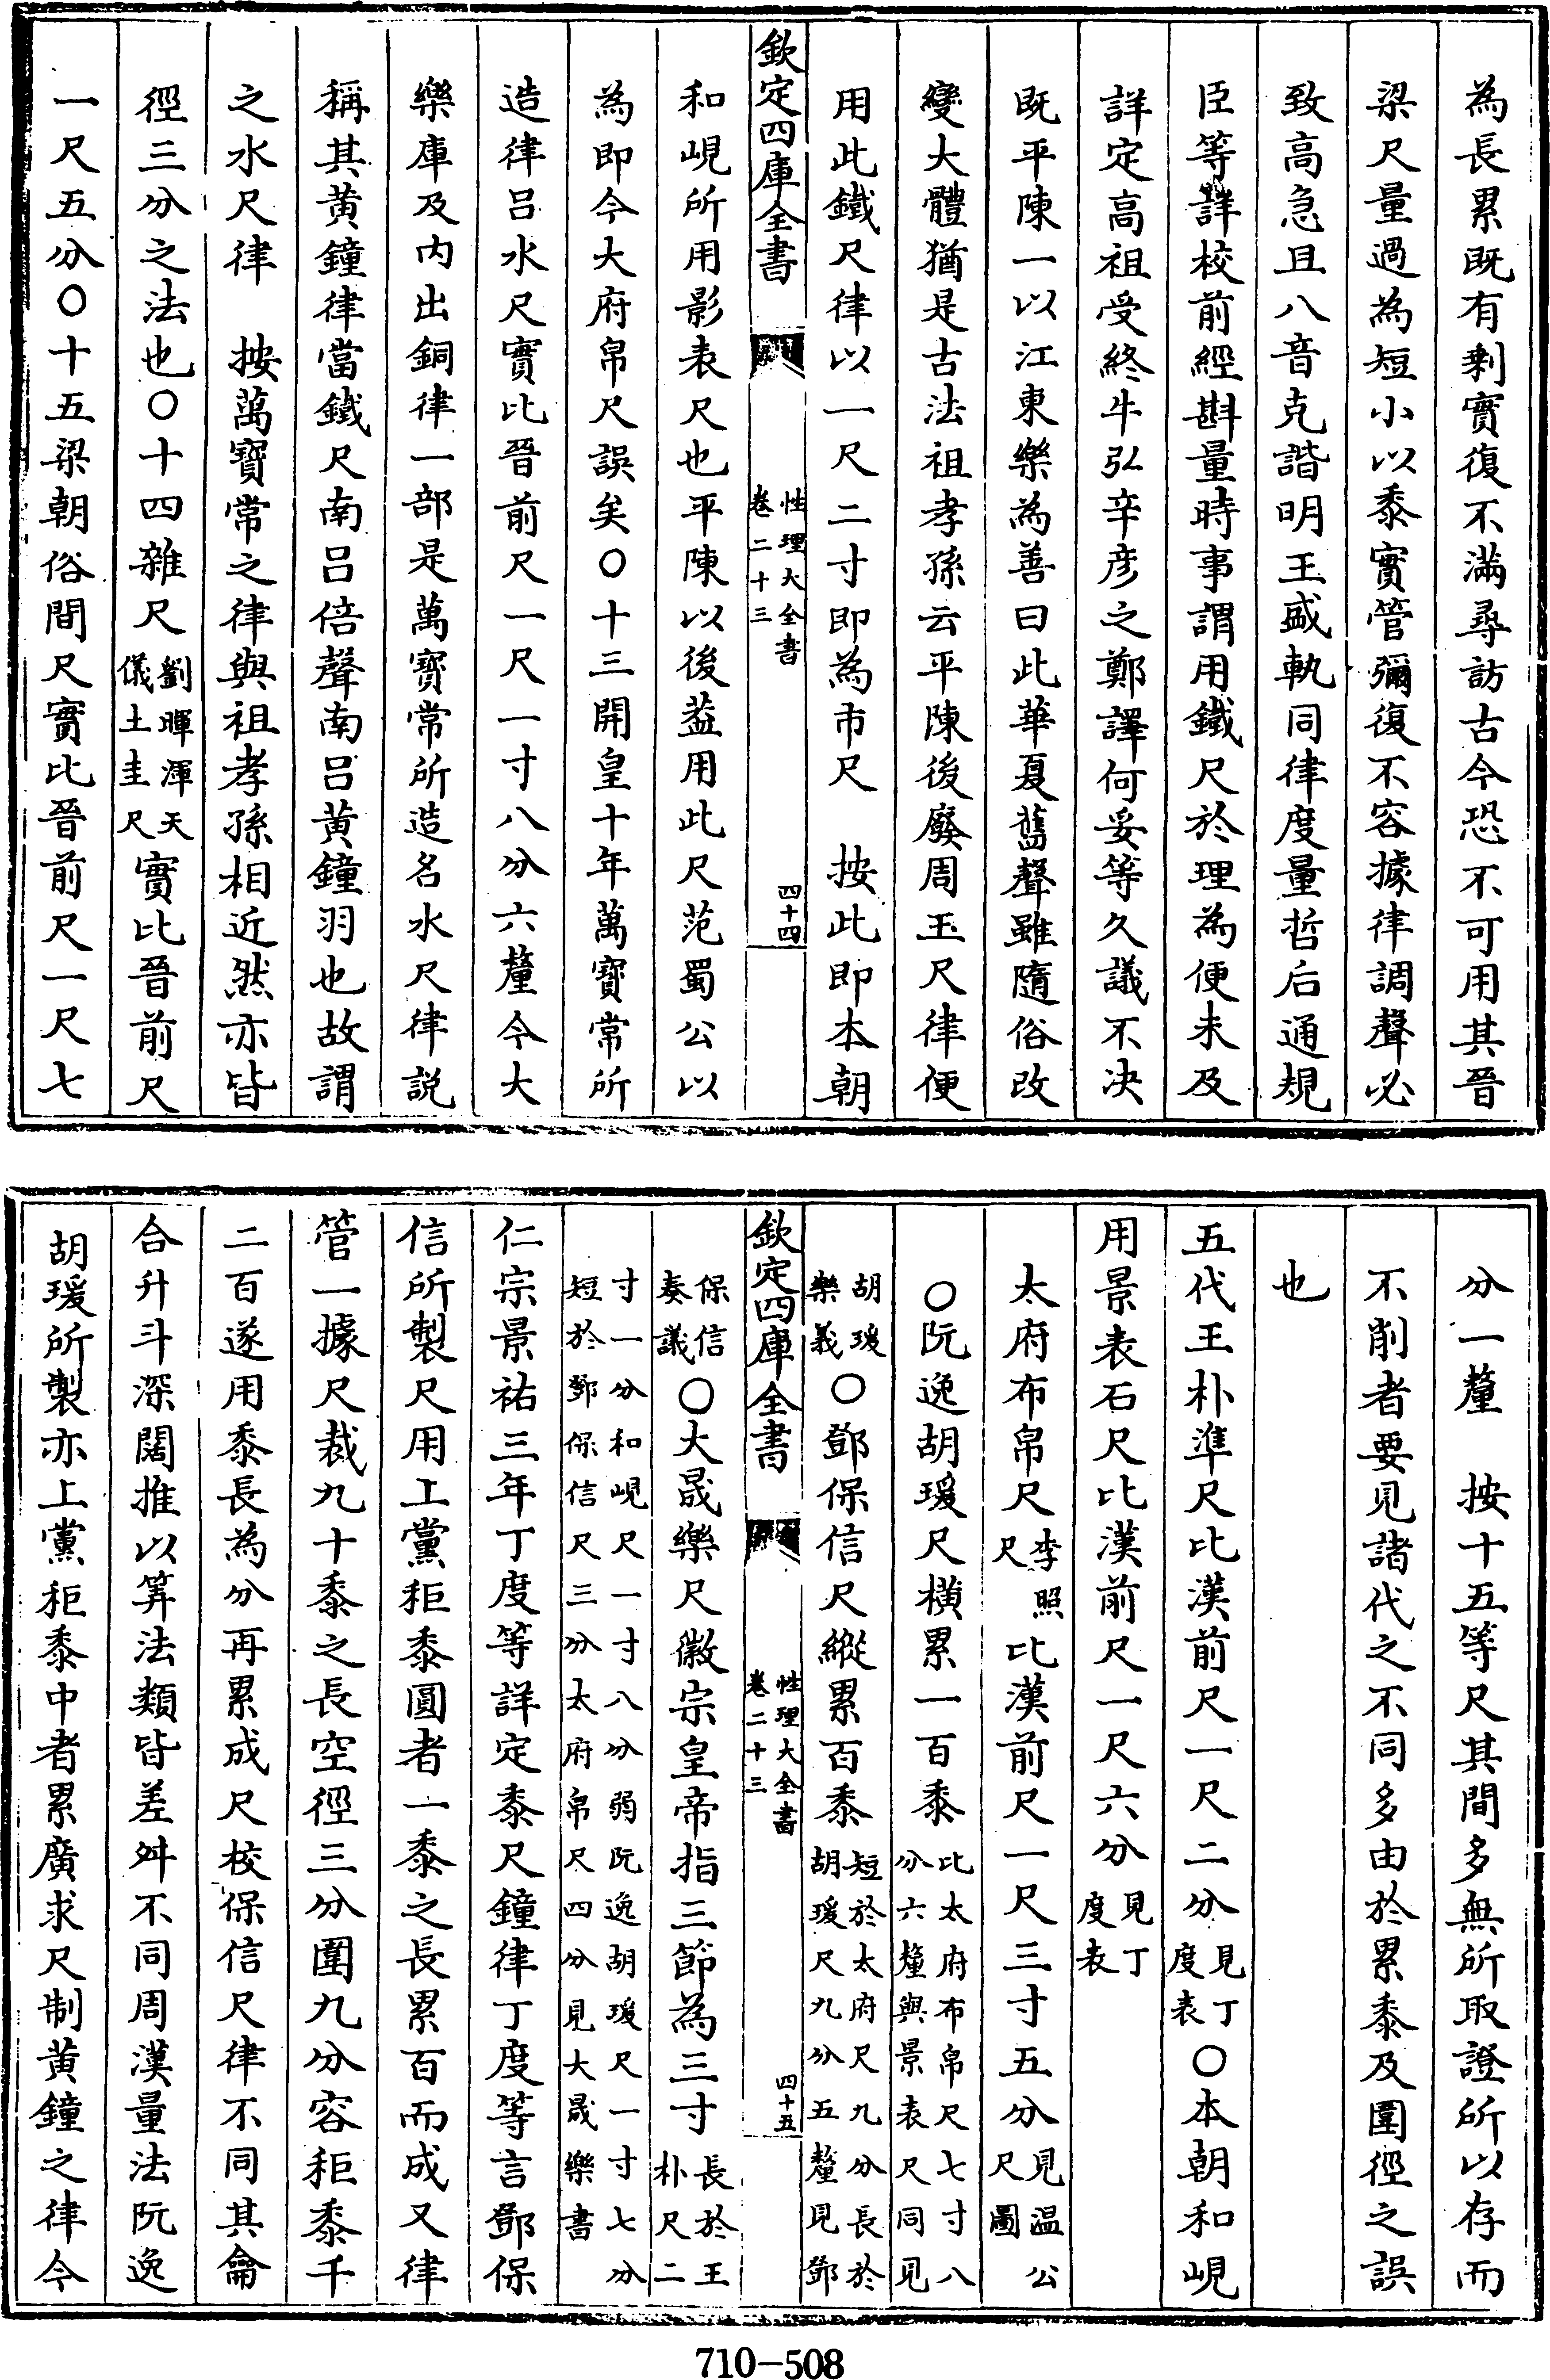 為長累既有剩實復不滿尋訪古今恐不可用其晉
梁尺量過為短小以黍實管彌復不容據律調聲必
致高急且八音克諧明王盛軌同律度量哲后通規
臣等詳校前經斟量時事謂用鐵尺於理為便未及
詳定高祖受終牛弘辛彦之鄭譯何妥等久議不決
既平陳一以江東樂為善曰此華夏舊聲雖隨俗改
變大體猶是古法祖孝孫云平陳後廢周玉尺律便
用此鐵尺律以一尺二寸即為市尺　按此即本朝
欽定四庫全書　性理大全書卷二十三　四十四
和峴所用影表尺也平陳以後葢用此尺范蜀公以
為即今大府帛尺誤矣○十三開皇十年萬寶常所
造律呂水尺實比晉前尺一尺一寸八分六釐今大
樂庫及内出銅律一部是萬寶常所造名水尺律説
稱其黄鐘律當鐵尺南呂倍聲南呂黄鐘羽也故謂
之水尺律　按萬寶常之律與祖孝孫相近然亦皆
徑三分之法也○十四雜尺劉暉渾天儀土圭尺實比晉前尺
一尺五分○十五梁朝俗間尺實比晉前尺一尺七
分一釐　按十五等尺其間多無所取證所以存而
不削者要見諸代之不同多由於累黍及圍徑之誤
也
五代王朴準尺比漢前尺一尺二分見丁度表○本朝和峴
用景表石尺比漢前尺一尺六分見丁度表
太府布帛尺李照尺比漢前尺一尺三寸五分見温公尺圖
○阮逸胡瑗尺橫累一百黍比太府布帛尺七寸八分六釐與景表尺同見
胡瑗樂義○鄧保信尺縱累百黍短於太府尺九分長於胡瑗尺九分五釐見鄧
欽定四庫全書　性理大全書卷二十三　四十五
保信奏議○大晟樂尺徽宗皇帝指三節為三寸長於王朴尺二
寸一分和峴尺一寸八分弱阮逸胡瑗尺一寸七分短於鄧保信尺三分太府帛尺四分見大晟樂書
仁宗景祐三年丁度等詳定黍尺鐘律丁度等言鄧保
信所製尺用上黨秬黍圓者一黍之長累百而成又律
管一據尺裁九十黍之長空徑三分圍九分容秬黍千
二百遂用黍長為分再累成尺校保信尺律不同其龠
合升斗深闊推以筭法類皆差舛不同周漢量法阮逸
胡瑗所製亦上黨秬黍中者累廣求尺制黄鐘之律今
710-508